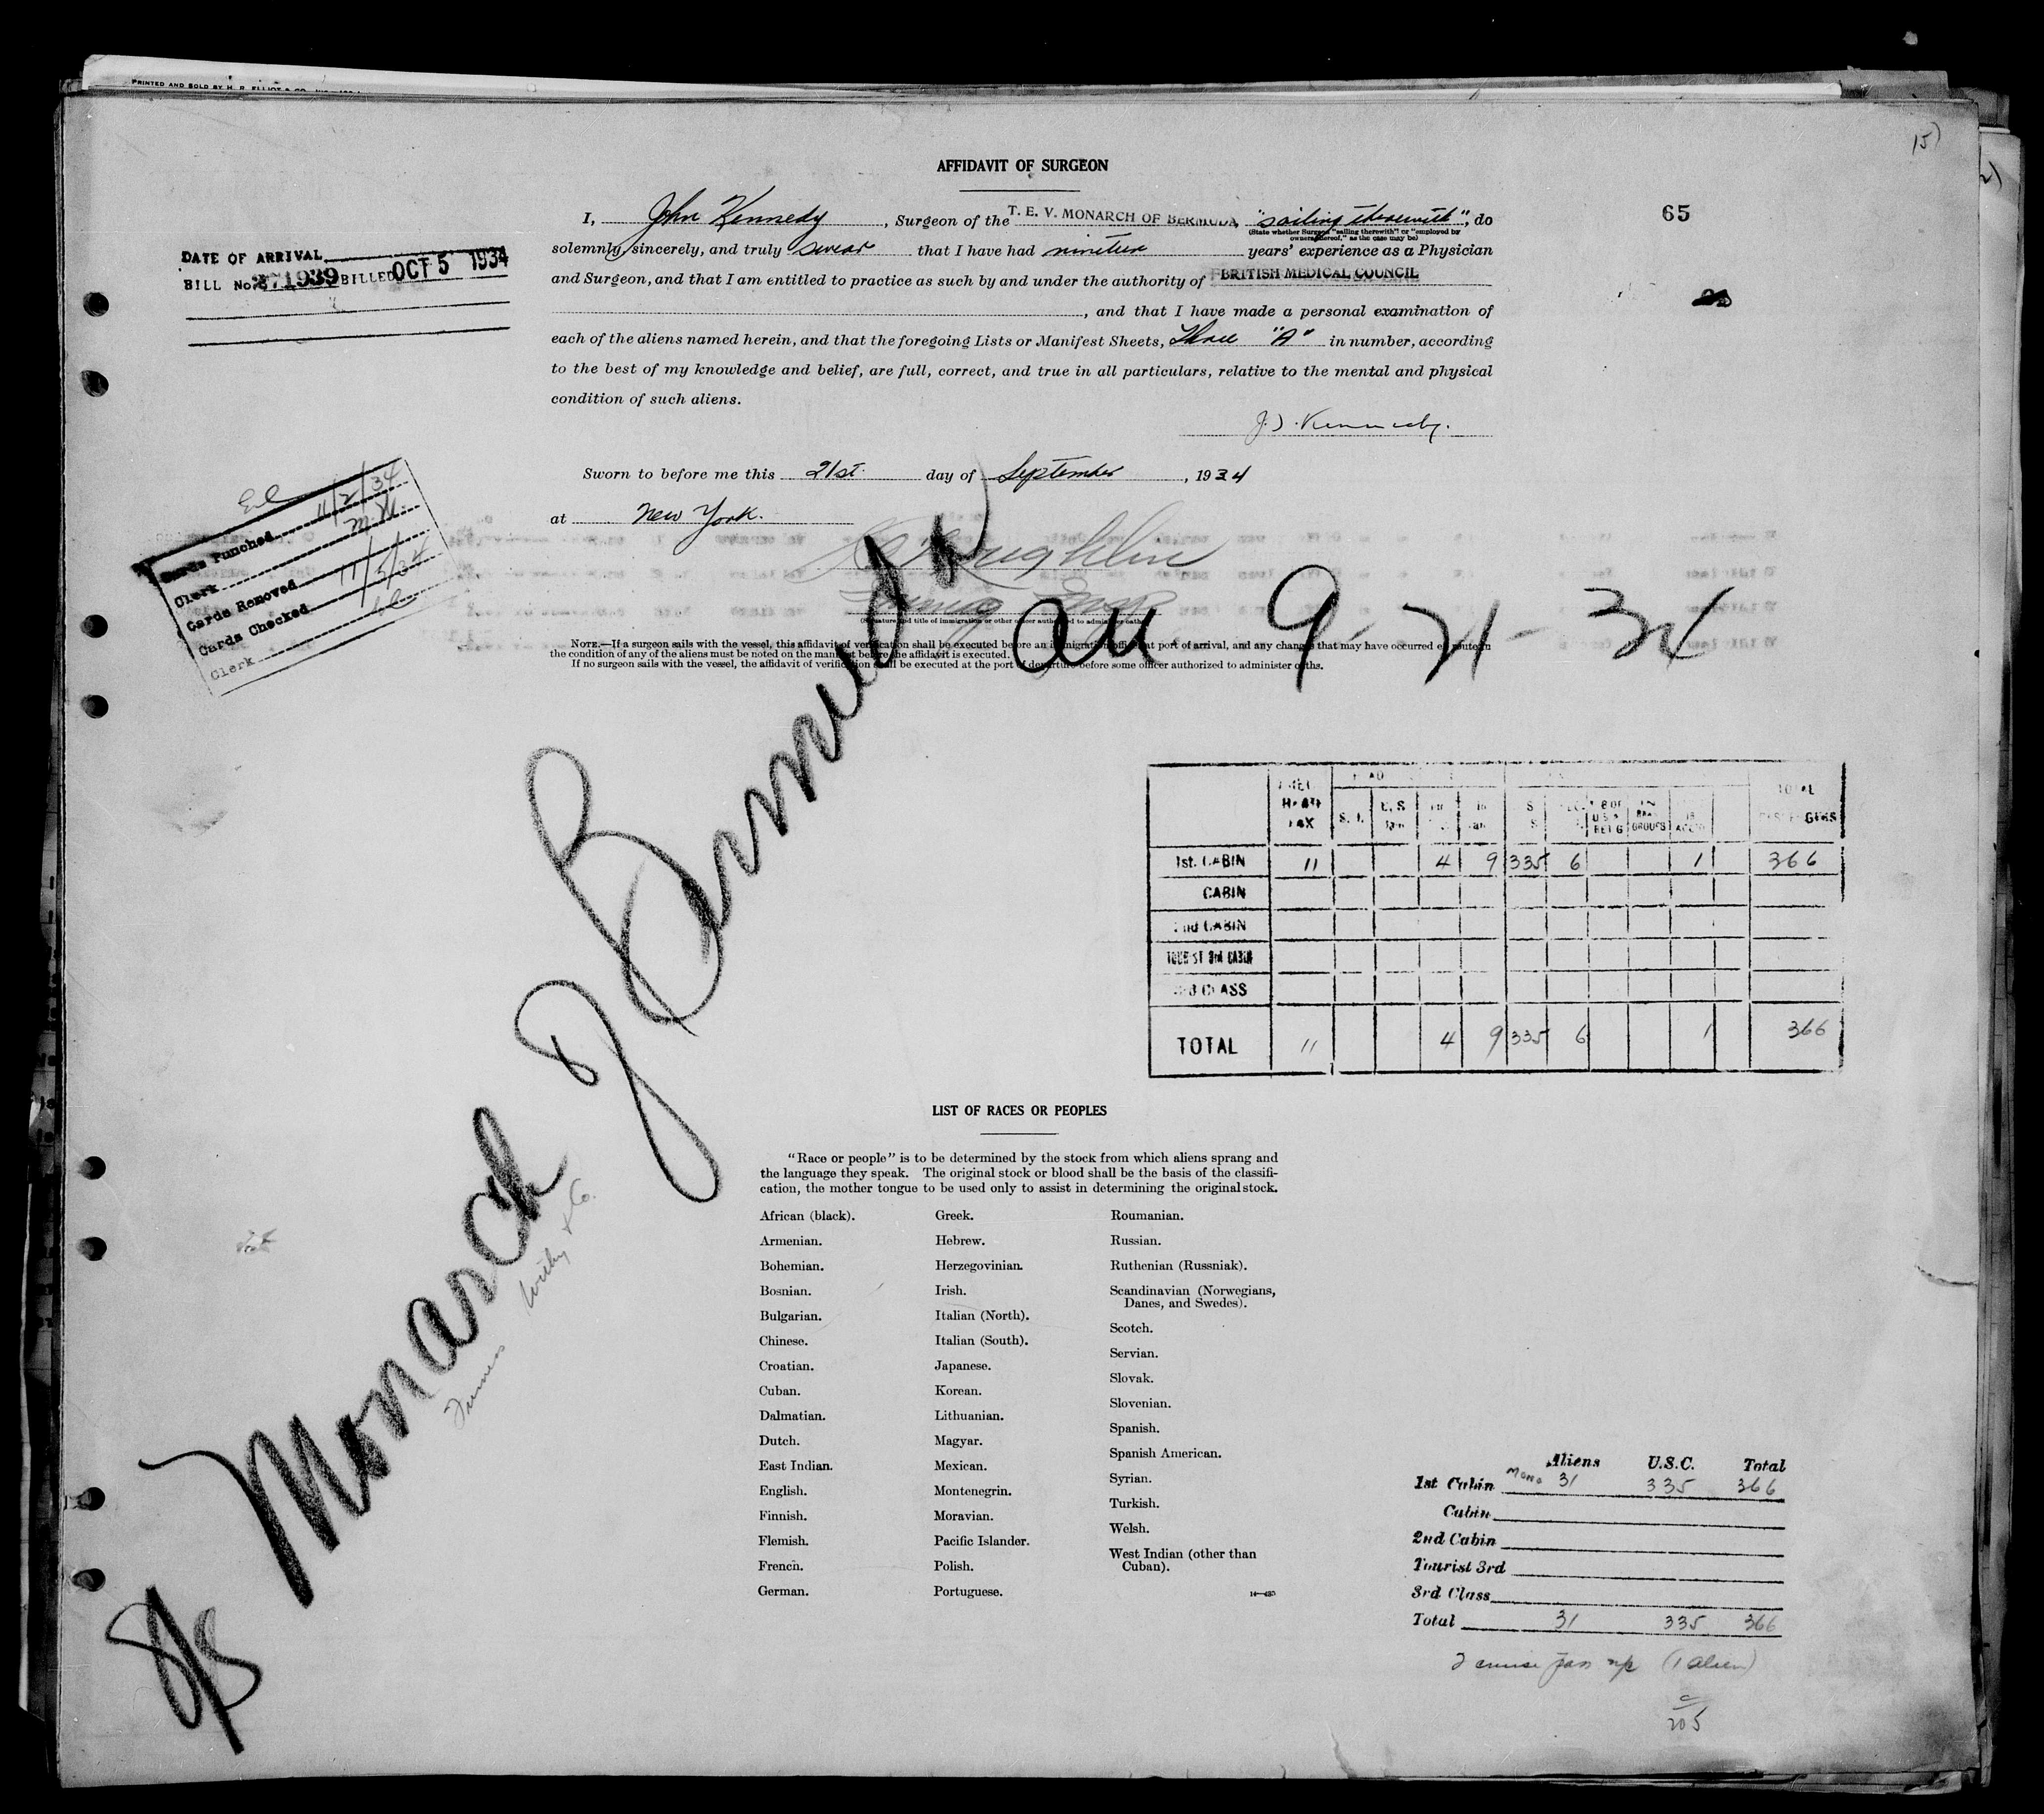 PRINTED AND SOLD BY H. R. ELLIOT & CO.
15)
AFFIDAVIT OF SURGEON
65
I, John Kennedy, Surgeon of the T. E. V. MONARCH OF BERMUDA, "sailing therewith", do
(State whether Surgeon "sailing therewith" or "employed by
owners thereof," as the case may be)
solemnly, sincerely, and truly swear that I have had nineteen years' experience as a Physician
and Surgeon, and that I am entitled to practice as such by and under the authority of BRITISH MEDICAL COUNCIL
, and that I have made a personal examination of
each of the aliens named herein, and that the foregoing Lists or Manifest Sheets, Three "A" in number, according
to the best of my knowledge and belief, are full, correct, and true in all particulars, relative to the mental and physical
condition of such aliens.
J. D. Kennedy.
DATE OF ARRIVAL
BILL No. 871939 BILLED OCT 5 1934
Sworn to before me this 21st. day of September, 1934
at New York.
Cards Punched 11/2/34
Clerk M.M.
Cards Removed
Cards Checked 11/5/34
Clerk
(Signature and title of immigration or other officer authorized to administer oaths)
NOTE.—If a surgeon sails with the vessel, this affidavit of verification shall be executed before an immigration officer at port of arrival, and any changes that may have occurred en route in
the condition of any of the aliens must be noted on the manifest before the affidavit is executed.
If no surgeon sails with the vessel, the affidavit of verification shall be executed at the port of departure before some officer authorized to administer oaths.
S/S Monarch of Bermuda
arr 9-21-34
Furness Withy & Co.
HEAD TAX
S. I.
U. S.
GROUPS
TOTAL
PASSENGERS
1st. CABIN 11 4 9 335 6 1 366
CABIN
2nd CABIN
TOURIST 3rd CABIN
3rd CLASS
TOTAL 11 4 9 335 6 1 366
LIST OF RACES OR PEOPLES
"Race or people" is to be determined by the stock from which aliens sprang and
the language they speak. The original stock or blood shall be the basis of the classifi-
cation, the mother tongue to be used only to assist in determining the original stock.
African (black).
Armenian.
Bohemian.
Bosnian.
Bulgarian.
Chinese.
Croatian.
Cuban.
Dalmatian.
Dutch.
East Indian.
English.
Finnish.
Flemish.
French.
German.
Greek.
Hebrew.
Herzegovinian.
Irish.
Italian (North).
Italian (South).
Japanese.
Korean.
Lithuanian.
Magyar.
Mexican.
Montenegrin.
Moravian.
Pacific Islander.
Polish.
Portuguese.
Roumanian.
Russian.
Ruthenian (Russniak).
Scandinavian (Norwegians,
Danes, and Swedes).
Scotch.
Servian.
Slovak.
Slovenian.
Spanish.
Spanish American.
Syrian.
Turkish.
Welsh.
West Indian (other than
Cuban).
Aliens U.S.C. Total
1st Cabin 31 335 366
Cabin
2nd Cabin
Tourist 3rd
3rd Class
Total 31 335 366
2 cruise pass (1 alien)
205